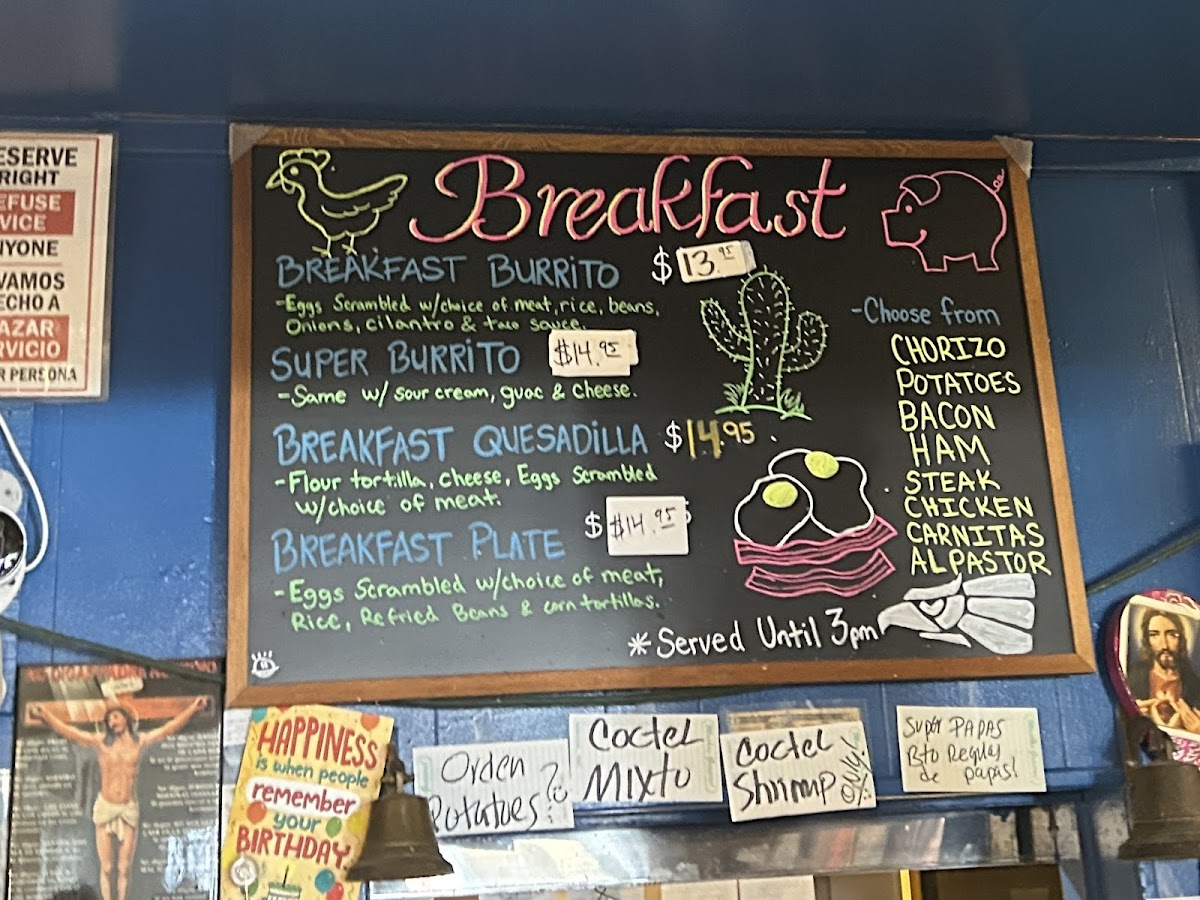 ESERVE
RIGHT
EFUSE
VICE
NYONE
VAMOS
ECHO A
AZAR
RVICIO
R PERSONA
Breakfast
BREAKFAST BURRITO $ 13.95
-Eggs Scrambled w/choice of meat, rice, beans,
Onions, cilantro & taco sauce.
SUPER BURRITO $14.95
-Same w/ sour cream, guac & cheese.
BREAKFAST QUESADILLA $14.95
-Flour tortilla, cheese, Eggs Scrambled
w/choice of meat.
BREAKFAST PLATE $ $14.95
-Eggs Scrambled w/choice of meat,
Rice, Refried Beans & corn tortillas.
-Choose from
CHORIZO
POTATOES
BACON
HAM
STEAK
CHICKEN
CARNITAS
AL PASTOR
*Served Until 3pm
HAPPINESS
is when people
remember
your
BIRTHDAY
Orden
Potatoes?
Coctel
Mixto
Coctel
Shrimp only!
Super PAPAS
Bto Regular
de papas!